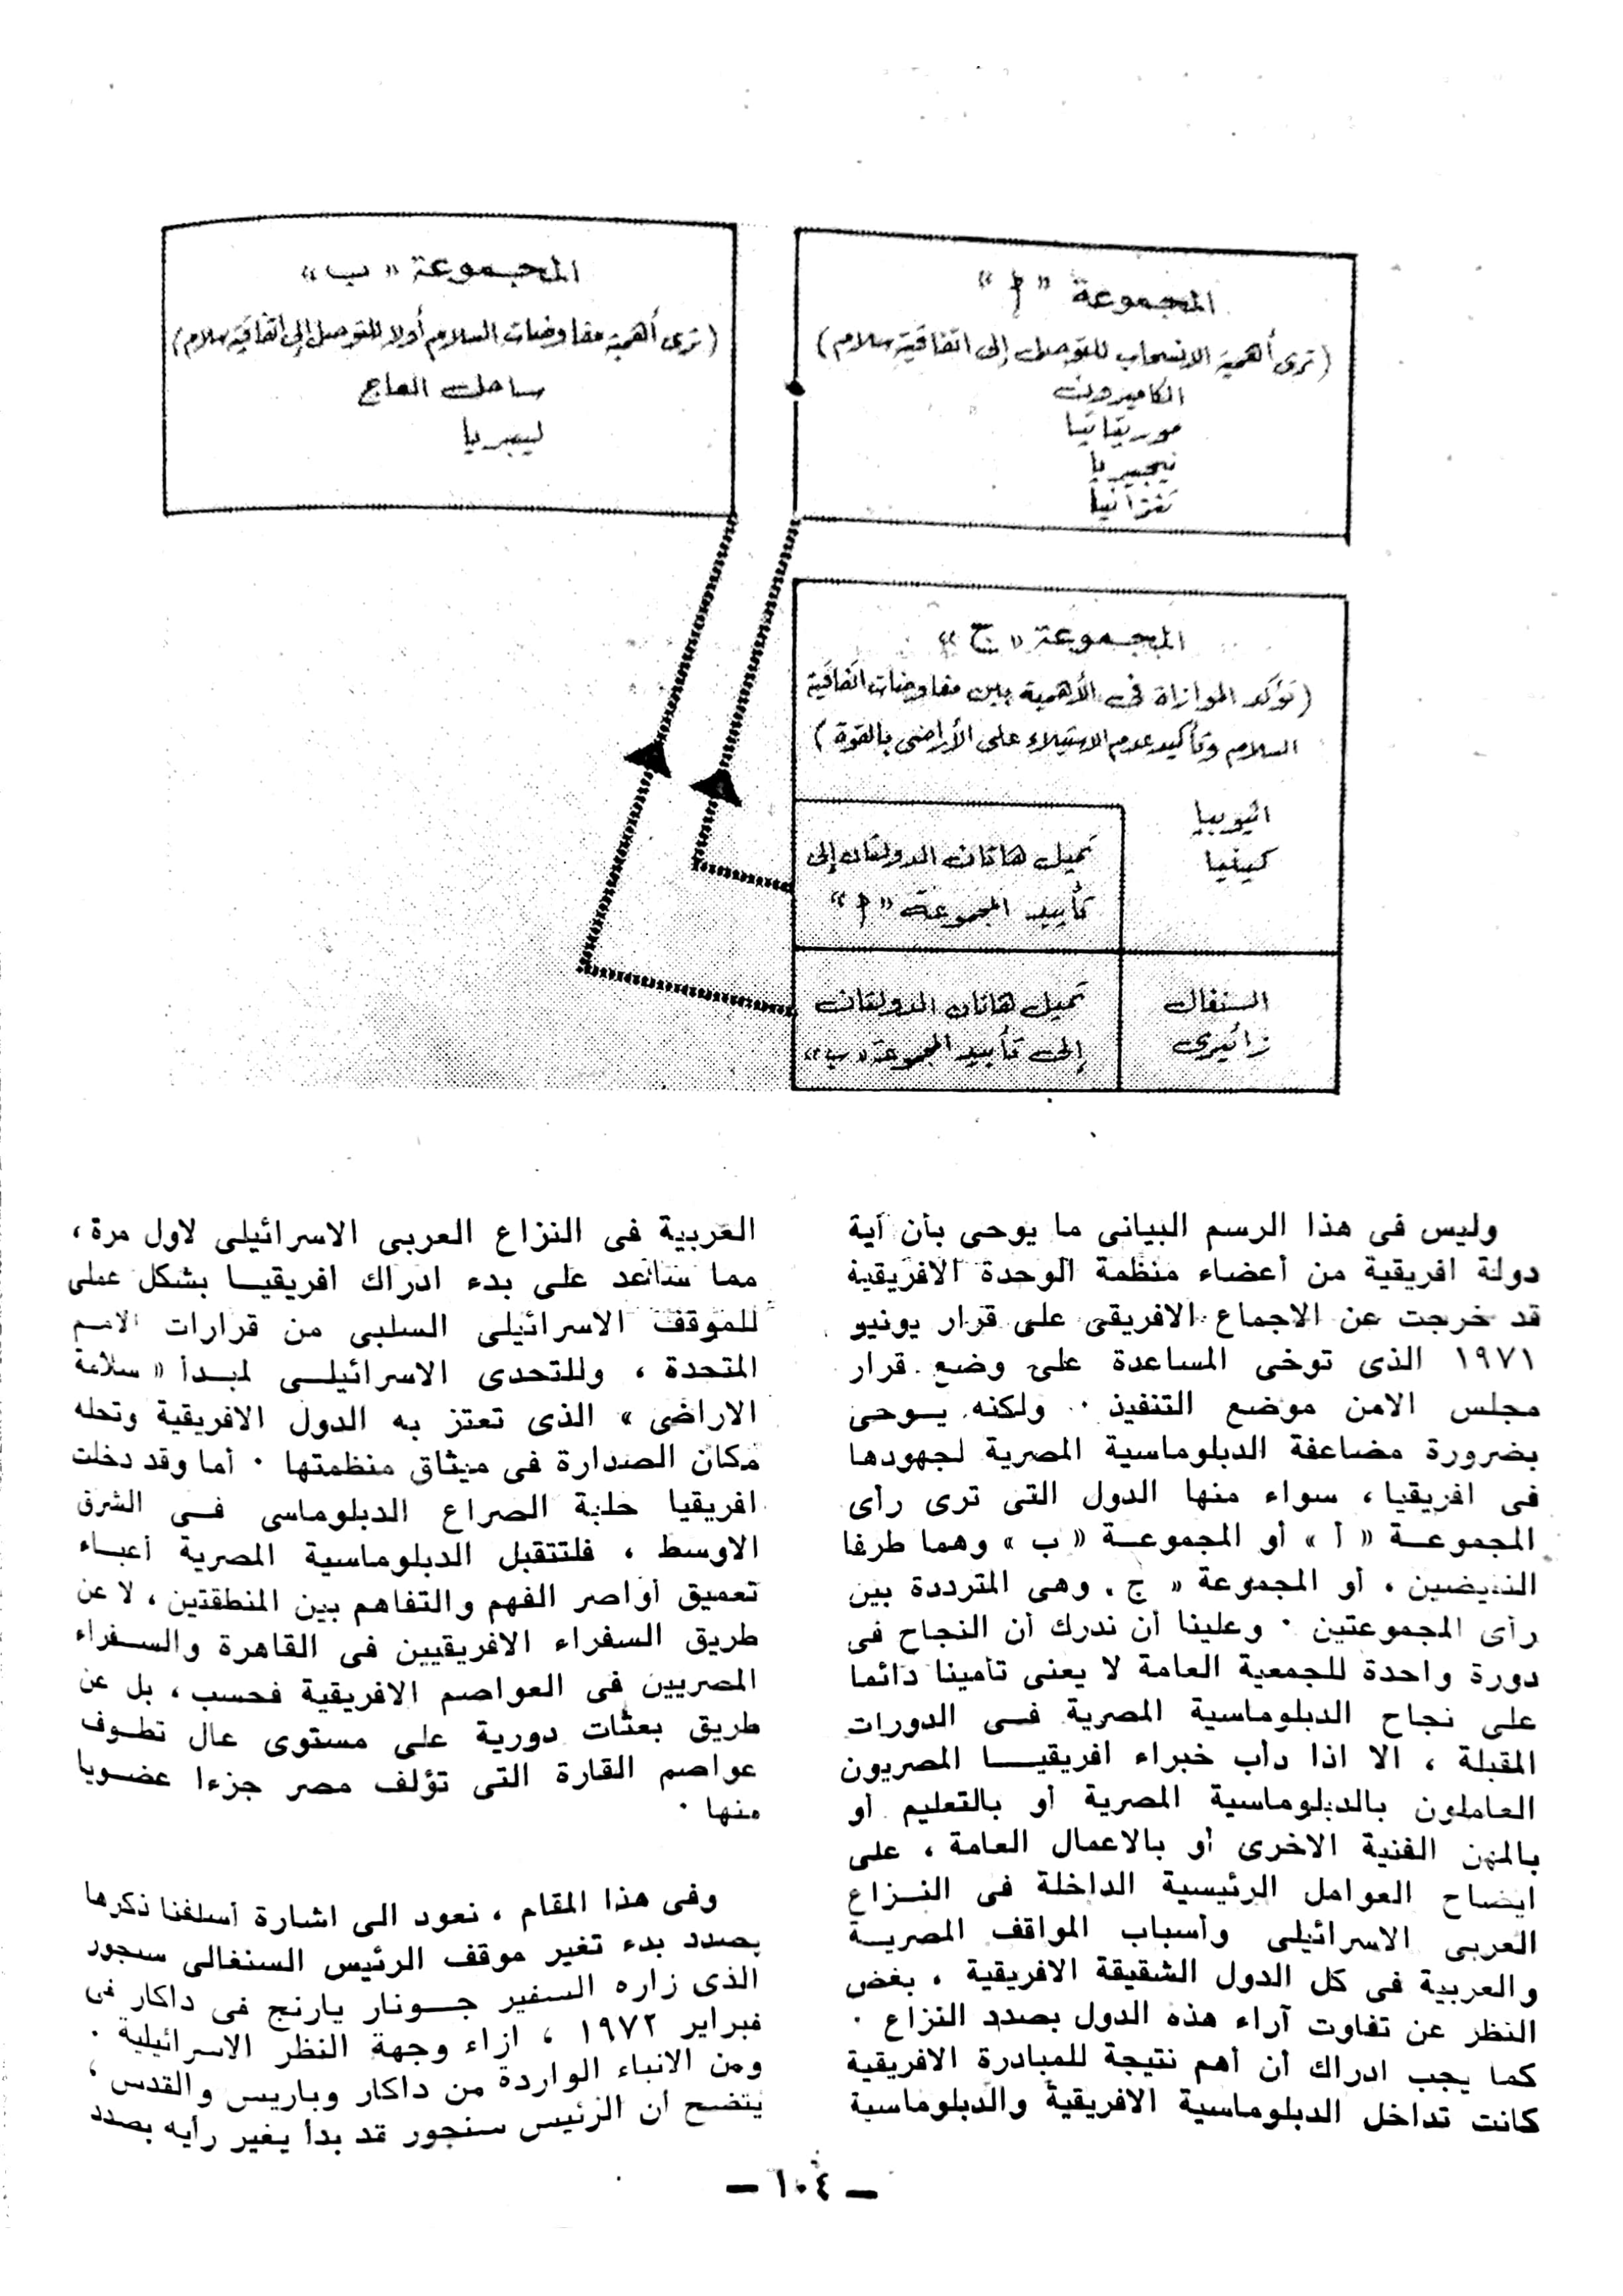 المجموعة « أ »
(ترى أهمية الانسحاب للتوصل إلى اتفاقية سلام)
الكاميرون
موريتانيا
نيجيريا
تنزانيا
المجموعة « ب »
(ترى أهمية مفاوضات السلام أولا للتوصل إلى اتفاقية سلام)
ساحل العاج
ليبيريا
المجموعة « ج »
(تؤكد الموازاة فى الأهمية بين مفاوضات اتفاقية
السلام وتأكيد عدم الاستيلاء على الأراضى بالقوة)
اثيوبيا
كينيا
تميل هاتان الدولتان إلى
تأييد المجموعة « أ »
السنغال
زائيرى
تميل هاتان الدولتان
إلى تأييد المجموعة « ب »
وليس فى هذا الرسم البيانى ما يوحى بأن أية
دولة افريقية من أعضاء منظمة الوحدة الافريقية
قد خرجت عن الاجماع الافريقى على قرار يونيو
١٩٧١ الذى توخى المساعدة على وضع قرار
مجلس الامن موضع التنفيذ ٠٠ ولكنه يوحى
بضرورة مضاعفة الدبلوماسية المصرية لجهودها
فى افريقيا ، سواء منها الدول التى ترى رأى
المجموعة « أ » أو المجموعة « ب » وهما طرفا
النقيضين ، أو المجموعة « ج . وهى المترددة بين
رأى المجموعتين ٠ وعلينا أن ندرك أن النجاح فى
دورة واحدة للجمعية العامة لا يعنى تأمينا دائما
على نجاح الدبلوماسية المصرية فى الدورات
المقبلة ، الا اذا دأب خبراء افريقيا المصريون
العاملون بالدبلوماسية المصرية أو بالتعليم أو
بالمهن الفنية الاخرى أو بالاعمال العامة ، على
ايضاح العوامل الرئيسية الداخلة فى النزاع
العربى الاسرائيلى وأسباب المواقف المصرية
والعربية فى كل الدول الشقيقة الافريقية ، بغض
النظر عن تفاوت آراء هذه الدول بصدد النزاع ٠
كما يجب ادراك أن أهم نتيجة للمبادرة الافريقية
كانت تداخل الدبلوماسية الافريقية والدبلوماسية
العربية فى النزاع العربى الاسرائيلى لاول مرة ،
مما ساعد على بدء ادراك افريقيا بشكل عملى
للموقف الاسرائيلى السلبى من قرارات الامم
المتحدة ، وللتحدى الاسرائيلى لمبدأ « سلامة
الاراضى » الذى تعتز به الدول الافريقية وتحله
مكان الصدارة فى ميثاق منظمتها ٠ أما وقد دخلت
افريقيا حلبة الصراع الدبلوماسى فى الشرق
الاوسط ، فلتتقبل الدبلوماسية المصرية أعباء
تعميق أواصر الفهم والتفاهم بين المنطقتين ، لا عن
طريق السفراء الافريقيين فى القاهرة والسفراء
المصريين فى العواصم الافريقية فحسب ، بل عن
طريق بعثات دورية على مستوى عال تطوف
عواصم القارة التى تؤلف مصر جزءا عضويا
منها ٠
وفى هذا المقام ، نعود الى اشارة أسلفنا ذكرها
بصدد بدء تغير موقف الرئيس السنغالى سنجور
الذى زاره السفير جونار يارنج فى داكار فى
فبراير ١٩٧٢ ، ازاء وجهة النظر الاسرائيلية ٠
ومن الانباء الواردة من داكار وباريس والقدس ،
يتضح أن الرئيس سنجور قد بدأ يغير رأيه بصدد
— ١٠٤ —